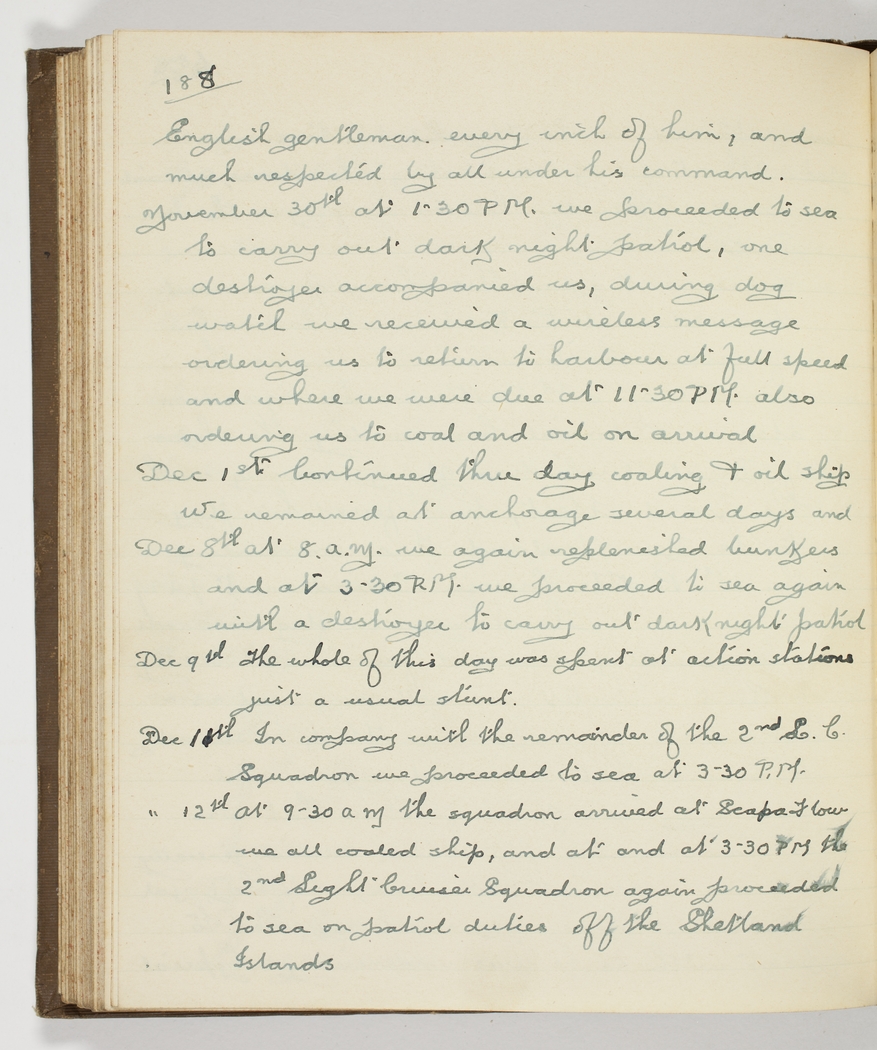 188
English gentleman. every inch of him, and
much respected by all under his command.
November 30th at 1-30 P.M. we proceeded to sea
to carry out dark night patrol, one
destroyer accompanied us, during dog
watch we received a wireless message
ordering us to return to harbour at full speed
and where we were due at 11-30 P.M. also
ordering us to coal and oil on arrival
Dec 1st Continued thru day coaling + oil ship
We remained at anchorage several days and
Dec 8th at 8. a.m. we again replenished bunkers
and at 3-30 P.M. we proceeded to sea again
with a destroyer to carry out dark night patrol
Dec 9th The whole of this day was spent at action stations
just a usual stunt.
Dec 11th In company with the remainder of the 2nd L. C.
Squadron we proceeded to sea at 3-30 P.M.
" 12th at 9-30 a m the squadron arrived at Scapa-Flow
we all coaled ship, and at and at 3-30 PM the
2nd Light Cruiser Squadron again proceeded
to sea on patrol duties off the Shetland
Islands